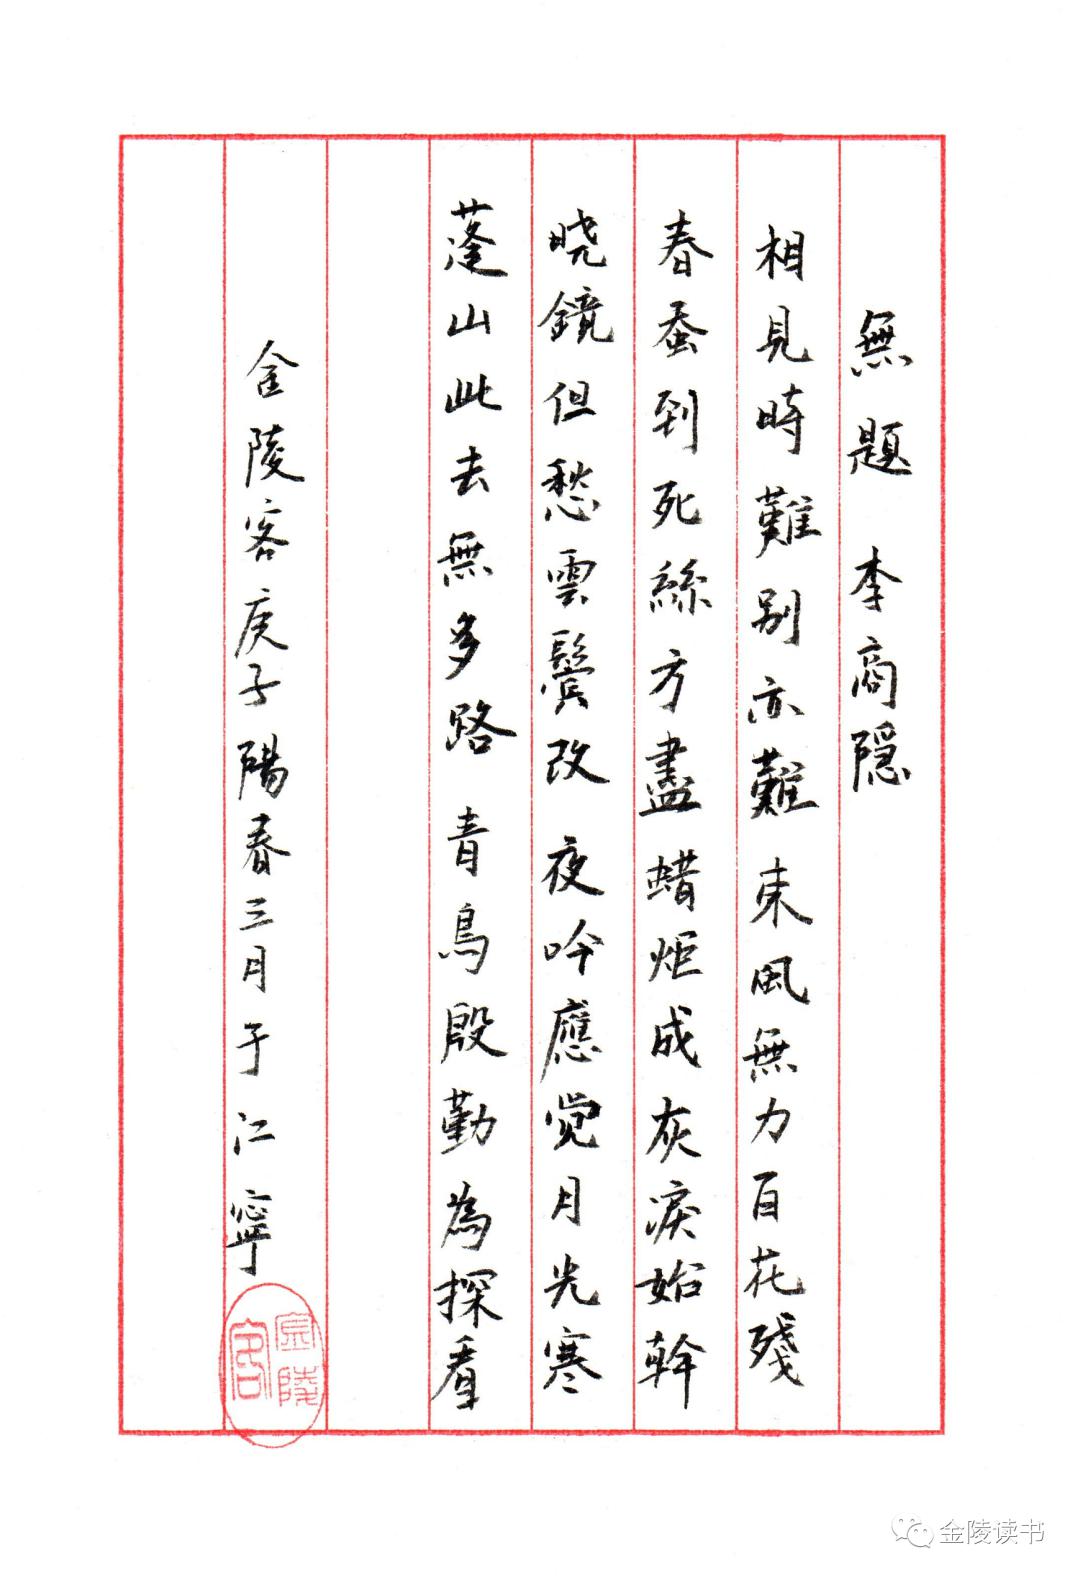 無題 李商隠
相見時難别亦難 東風無力百花殘
春蚕到死絲方盡 蜡炬成灰淚始幹
晓鏡但愁雲鬢改 夜吟應觉月光寒
蓬山此去無多路 青鳥殷勤為探看
金陵客庚子陽春三月于江寧
金陵客
金陵读书